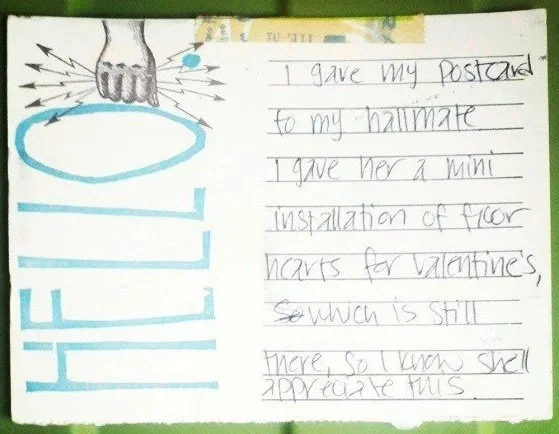 HELLO
I gave my postcard
to my hallmate
I gave her a mini
installation of floor
hearts for Valentine's,
which is still
there, so I know shell
appreciate this.